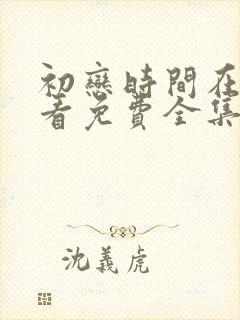 初戀時間在
看免費全集
沈義虎